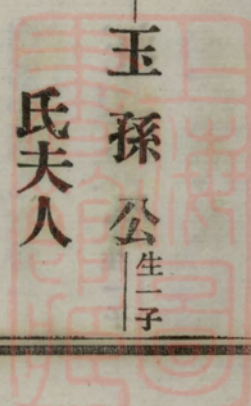 玉孫公生一子
氏夫人